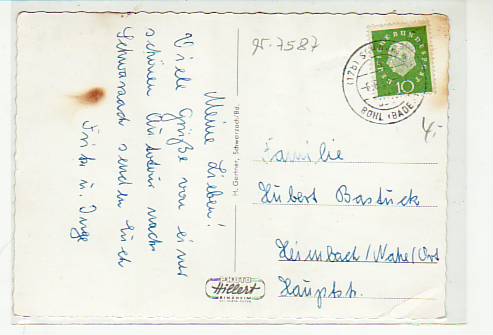 Meine Lieben!
Viele Grüße von einer
schönen Autotour nach
Schwarzach senden Euch
Fritz u. Inge
gr. 7587
H. Gertner, Schwarzach/Bd.
Hillert
BINSHEIM
DEUTSCHE BUNDESPOST
10
(17b)
BÜHL (BADEN)
4,-
Familie
Hubert Bastuck
Heimbach/Nahe/Ort
Hauptstr.